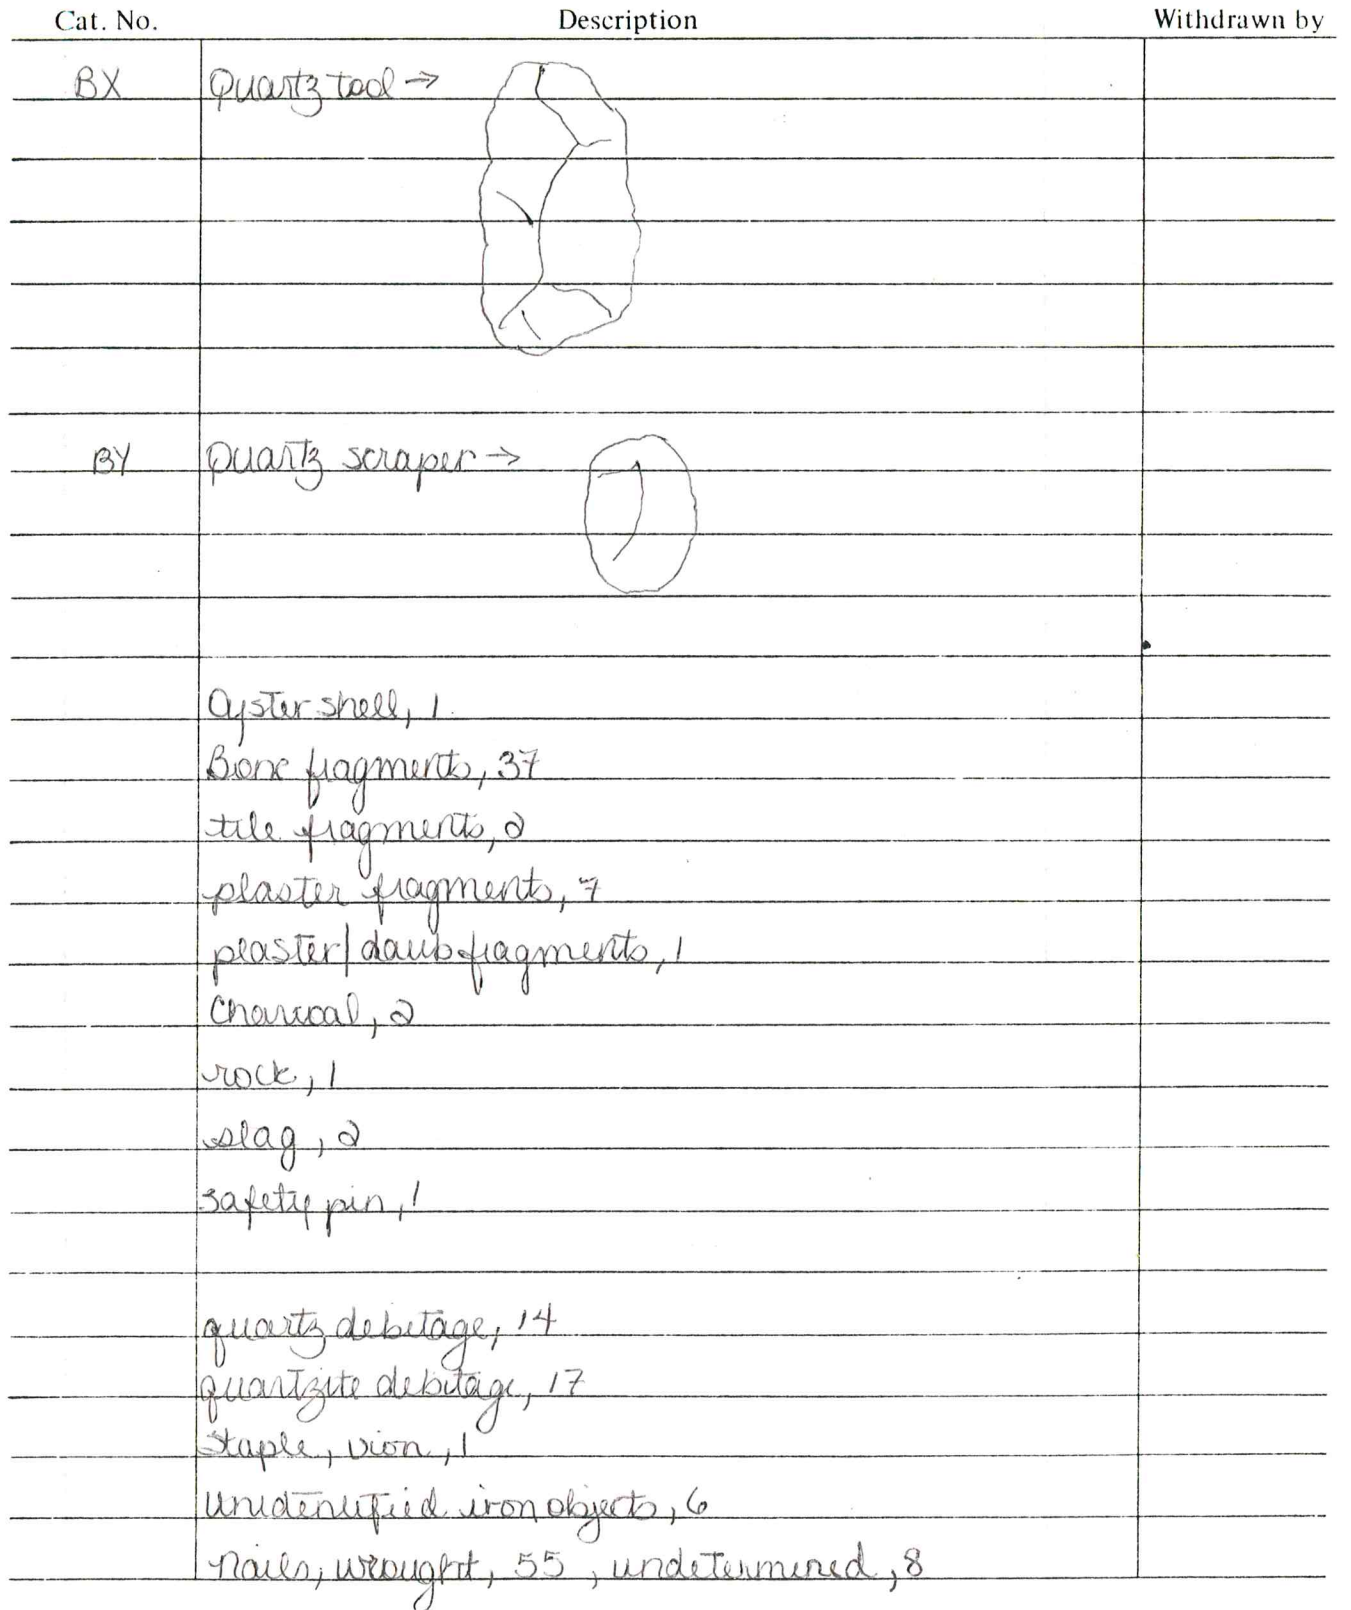 Cat. No. Description Withdrawn by
BX Quartz tool →
BY Quartz scraper →
Oyster shell, 1
Bone fragments, 37
tile fragments, 2
plaster fragments, 7
plaster/daub fragments, 1
Charcoal, 2
rock, 1
slag, 2
safety pin, 1
quartz debitage, 14
quartzite debitage, 17
staple, iron, 1
unidentified iron objects, 6
nails, wrought, 55, undetermined, 8